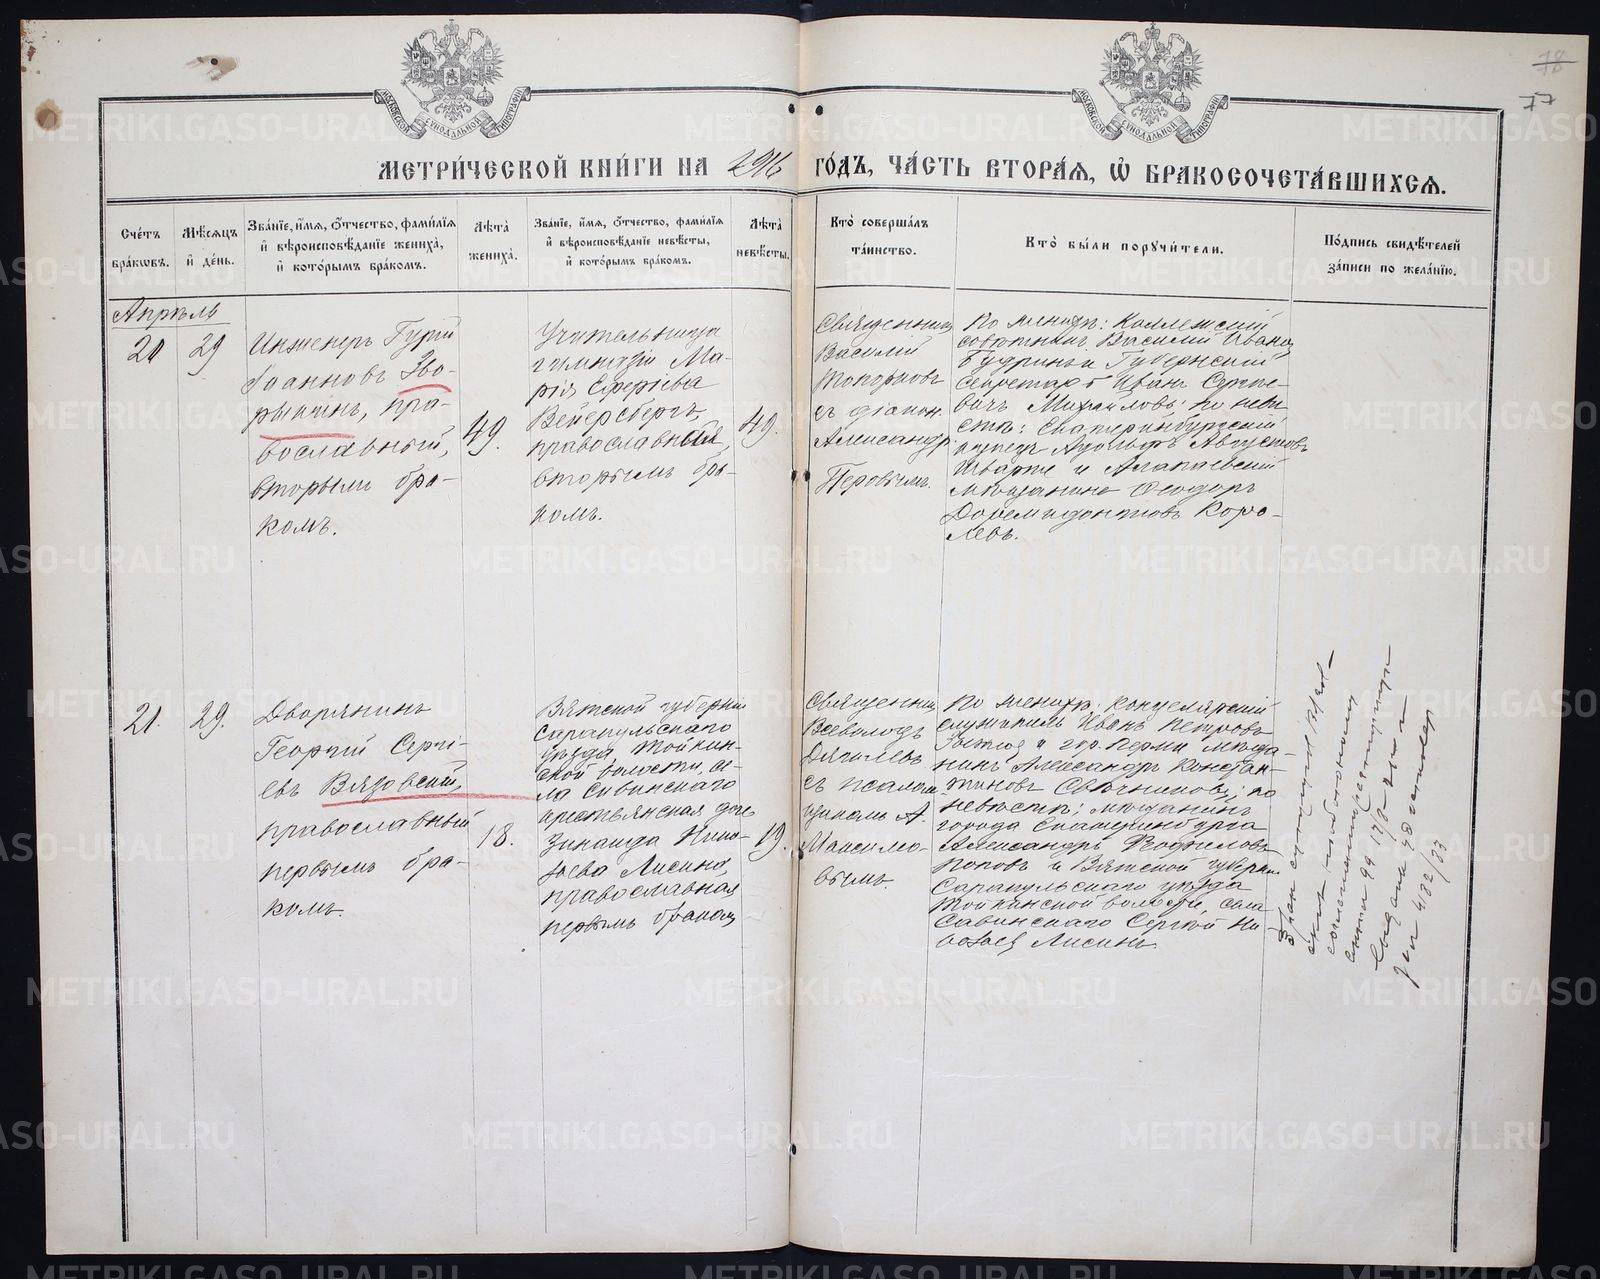 78
77
МОСКОВСКОЙ СѴНОДАЛЬНОЙ ТИПОГРАФІИ
МОСКОВСКОЙ СѴНОДАЛЬНОЙ ТИПОГРАФІИ
МЕТРИ́ЧЕСКОЙ КНИ́ГИ НА 1916 ГО́ДЪ, ЧА́СТЬ ВТОРА́Я, Ѡ БРАКОСОЧЕТА́ВШИХСЯ.
Сче́тъ бра́кѡвъ.
Мѣ́сяцъ и де́нь.
Зва́нїе, и́мя, ѻ́тчество, фами́лїя и вѣроисповѣ́данїе жениха̀, и кото́рымъ бра́комъ.
Лѣ́та жениха̀.
Зва́нїе, и́мя, ѻ́тчество, фами́лїя и вѣроисповѣ́данїе невѣ́сты, и кото́рымъ бра́комъ.
Лѣ́та невѣ́сты.
Кто̀ соверша́лъ та́инство.
Кто̀ бы́ли порꙋчи́тели.
По́дпись свидѣ́телей за́писи по жела́нїю.
Апрѣль
20
29
Инженеръ Гурій
Іоанновъ Зво-
рыкинъ, пра-
вославный,
вторымъ бра-
комъ.
49.
Учительница
гимназіи Ма-
рія
Вейерсбергъ,
православная,
вторымъ бра-
комъ.
49.
Священникъ
Василій
Топорковъ
съ діакон.
Александр.
Перовымъ.
По женихѣ: Коллежскій
совѣтникъ Василій Ивановъ
Будринъ и Губернскій
секретарь Иванъ Сергѣе-
вичъ Михайловъ; по невѣ-
стѣ: Екатеринбургскій
купецъ Адольфъ Августовъ
Шварте и Алапаевскій
мѣщанинъ Ѳеодоръ
Доремидонтовъ Коро-
левъ.
21.
29.
Дворянинъ
Георгій Сергі-
евъ Вязовскій,
православный
первымъ бра-
комъ.
18.
Вятской губерніи
Сарапульскаго
уѣзда, Мойкин-
ской волости, се-
ла Сивинскаго
крестьянская дочь
Зинаида
Лисина,
православная
первымъ бракомъ
19.
Священник
Всеволодъ
Дягилевъ
съ псалом-
щикомъ А.
Максимо-
вымъ.
По женихѣ: канцелярскій
служитель Иванъ Петровъ
и гор. Перми мѣща-
нинъ Александръ Констан-
тиновъ Свѣчниковъ; по
невѣстѣ: мѣщанинъ
города Екатеринбурга
Александръ Ѳеофиловъ
Поповъ и Вятской губерніи
Сарапульскаго уѣзда
Мойкинской волости, села
Савинскаго Сергѣй
Лисинъ.
METRIKI.GASO-URAL.RU